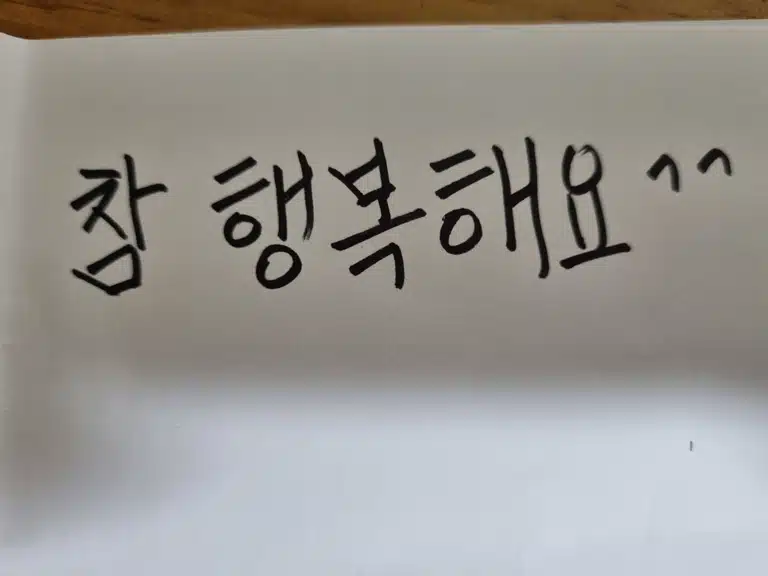 참 행복해요^^